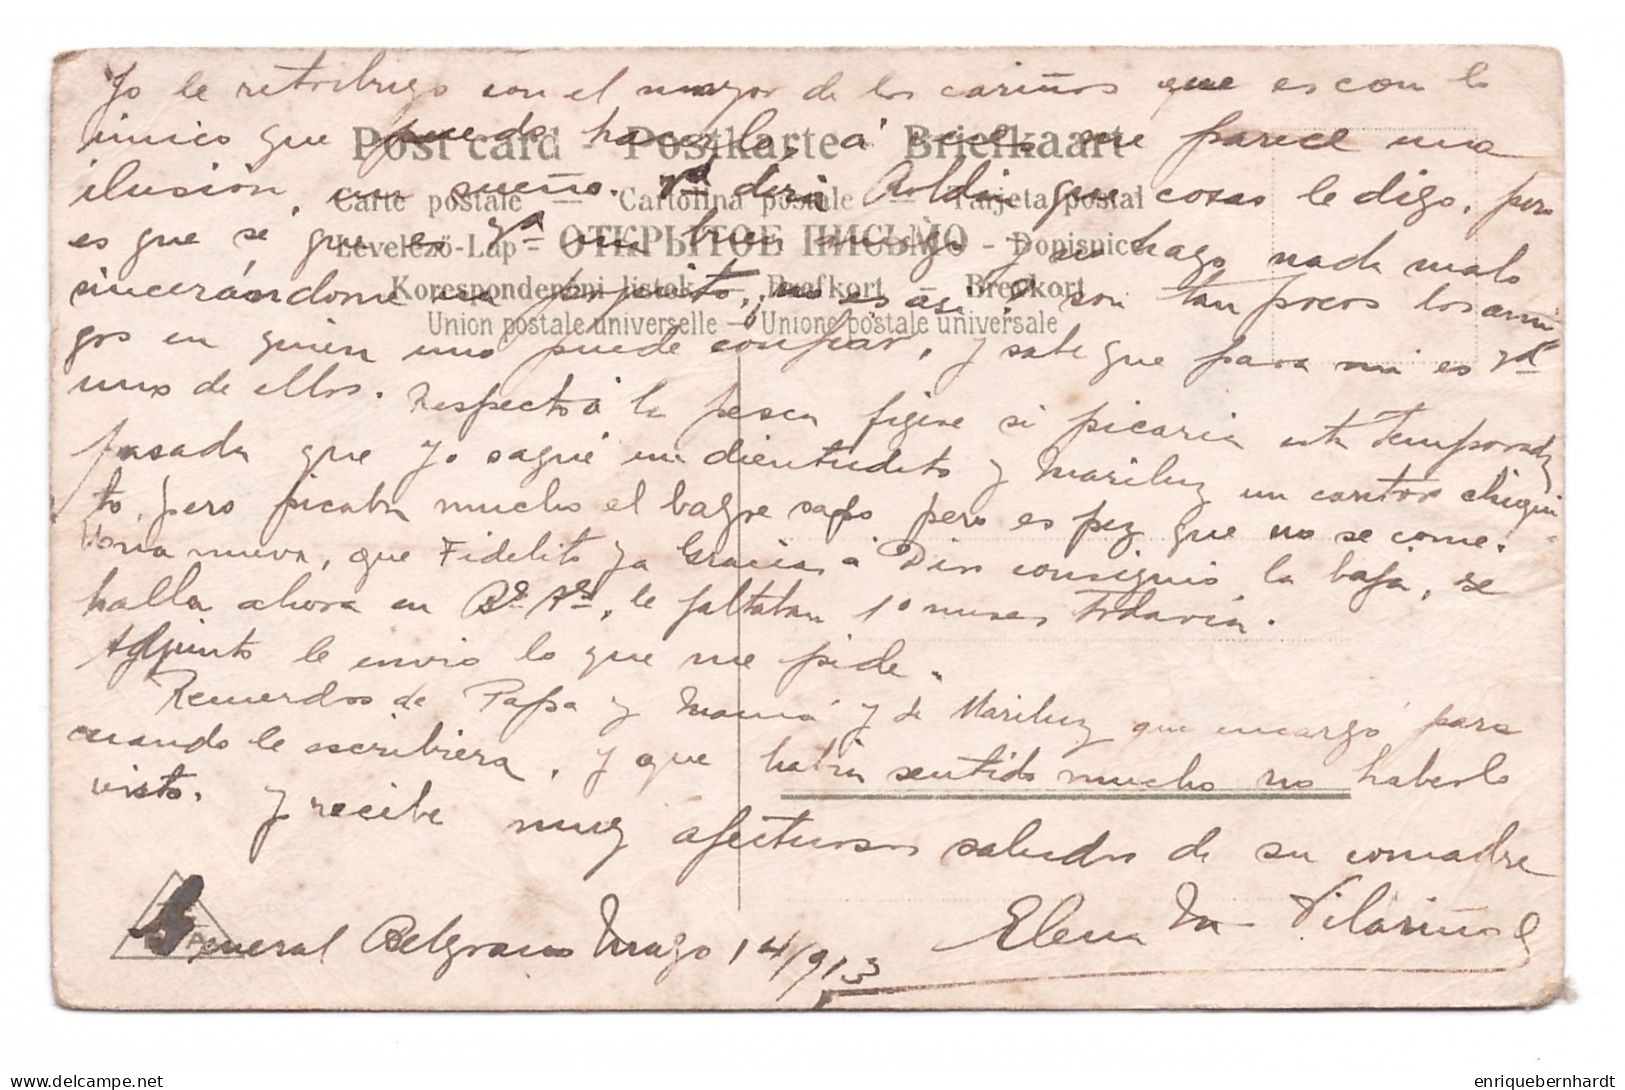 Yo le retribuyo con el mayor de los cariños que es con lo
único que puedo hacerlo, á veces me parece una
Post card - Postkarte - Briefkaart
ilusión, un sueño. Vd diria Roldán que cosas le digo, pero
Carte postale — Cartolina postale — Tarjeta postal
es que sé que es Vd un buen amigo y no hago nada malo
Levelező-Lap - ОТКРЫТОЕ ПИСЬМО - Dopisnice
sincerándome un poquito, ¿no es así? son tan pocos los ami
Korespondenční listek — Brefkort — Brevkort
Union postale universelle — Unione postale universale
gos en quien uno puede confiar, y sabe que para mi es Vd
uno de ellos. Respecto á la pesca figúre si picaria esta temporada
pasada que yo saqué un dientudito y Mariluz un cantor chiqui
to, pero picaba mucho el bagre sapo pero es pez que no se come.
nueva, que Fidelito ya Gracias á Dios consiguió la baja, se
halla ahora en Bs As, le faltaban 10 meses todavia.
Adjunto le envio lo que me pide.
Recuerdos de Papá y Mamá y de Mariluz que encargó para
cuando le escribiera, y que habia sentido mucho no haberlo
visto. Y recibe muy afectuosos saludos de su comadre
Elena M Vilariño
General Belgrano Mayo 14/913
enriquebernhardt